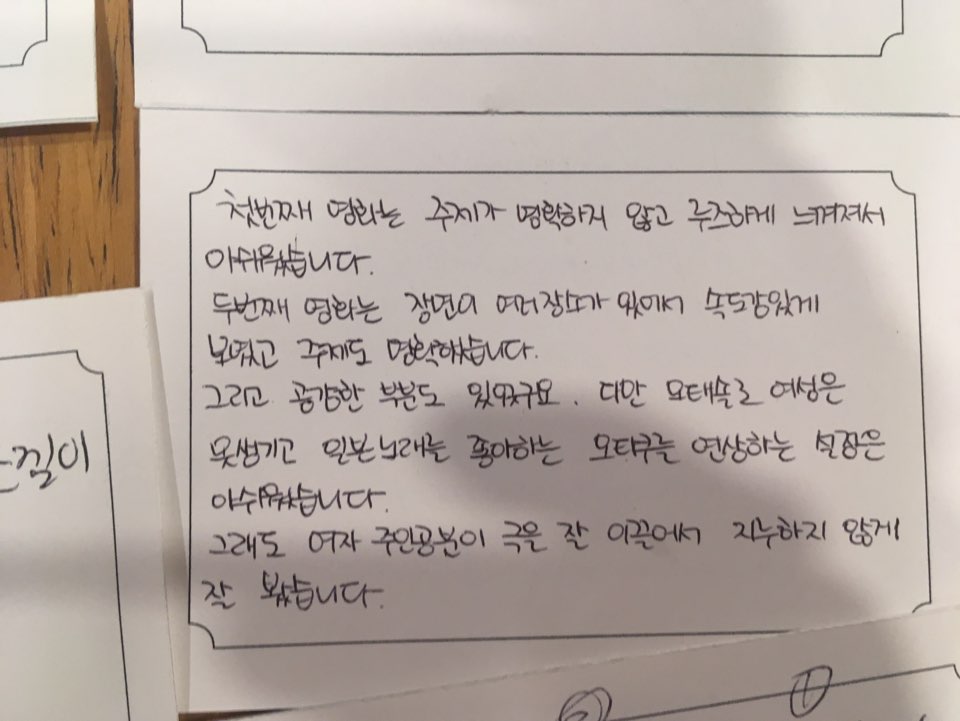 첫번째 영화는 주제가 명확하지 않고 루즈하게 느껴져서
아쉬웠습니다.
두번째 영화는 장면이 여러장소가 있어서 속도감있게
보였고 주제도 명확했습니다.
그리고 공감한 부분도 있었구요. 다만 모태솔로 여성은
못생기고 일본노래를 좋아하는 오타쿠를 연상하는 설정은
아쉬웠습니다.
그래도 여자 주인공분이 극을 잘 이끌어서 지누하지 않게
잘 봤습니다.
낌이
①